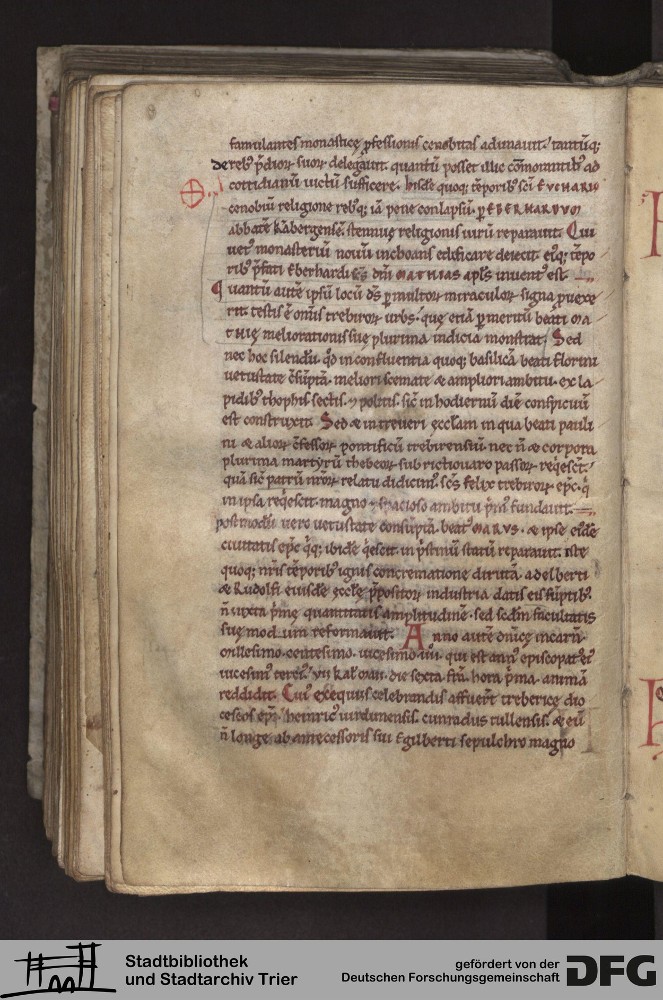 famulantes monasticę ꝓfessionis cenobitas adunauit. tantũq;
de reb; p̃dioꝝ suoꝝ delegauit. quantũ posset illic cõmorantib; ad
cottidianũ uictũ sufficere. hisdẽ quoq; tẽporib; sc̃i EVCHARII
cenobiũ religione reb;q; iã pene conlapsũ. ꝑ EBERHARDVM
abbatẽ strennuę religionis uirũ reparauit. Qui
uet; monasteriũ nouũ inchoans edificare deiecit. ei;q; tẽpo
rib; p̃fati Eberhardi dñi MATHIAS apl̃s inuent; est.
Quantũ autẽ ipsũ locũ dñs ꝑ multoꝝ miraculoꝝ signa ꝓuexe
rit. testis ẽ om̃is trebiroꝝ urbs. quę etiã ꝑ meritũ beati MA
THIĘ meliorationis suę plurima indicia monstrat. Sed
nec hoc silendũ. qđ in confluentia quoq; basilicã beati florini
uetustate c̃sũptã. meliori scemate & ampliori ambitu. ex la
pidib; thophis sectis. & politis. sic̃ in hodiernũ diẽ conspiciũt
est construxit. Sed & in treueri ęccl̃am in qua beati pauli
ni & alioꝝ c̃fessoꝝ pontificũ trebirensiũ. nec ñ & corpora
plurima martyrũ thebeoꝝ sub rictiouaro passoꝝ req̃esc̃t.
quã sic̃ patrũ nr̃oꝝ relatu didicim;. sc̃s felix treberoꝝ ep̃c. q̃
in ipsa req̃escit. magno & spacioso ambitu p̃m; fundauit.
postmodũ uero uetustate consũptã. beat; MARVS. & ipse ei;dẽ
ciuitatis ep̃c q̃q; ibidẽ q̃escit. in p̃stinũ statũ reparauit. iste
quoq; nr̃is tẽporib; ignis concrematione dirutã. adelberti
& Rudolfi eiusdẽ ęccl̃ę p̃positoꝝ industria datis eis sũptib;.
ñ iuxta p̃mę quantitatis amplitudinẽ. sed scdm̃ facultatis
suę modum reformauit. Anno autẽ dñicę incarñ.
Millesimo. centesimo. uicesimo. qui est ann; episcopat; ei;
uicesim; terci;. die sexta fr̃ia. hora p̃ma. animã
reddidit. Cui; exequiis celebrandis affuer̃t trebericę dio
ceseos ep̃i. heinric; uirdunensis. cunradus tullensis. & eũ
ñ longe ab antecessoris sui Egilberti sepulchro magno
Stadtbibliothek
und Stadtarchiv Trier
gefördert von der
Deutschen Forschungsgemeinschaft
DFG